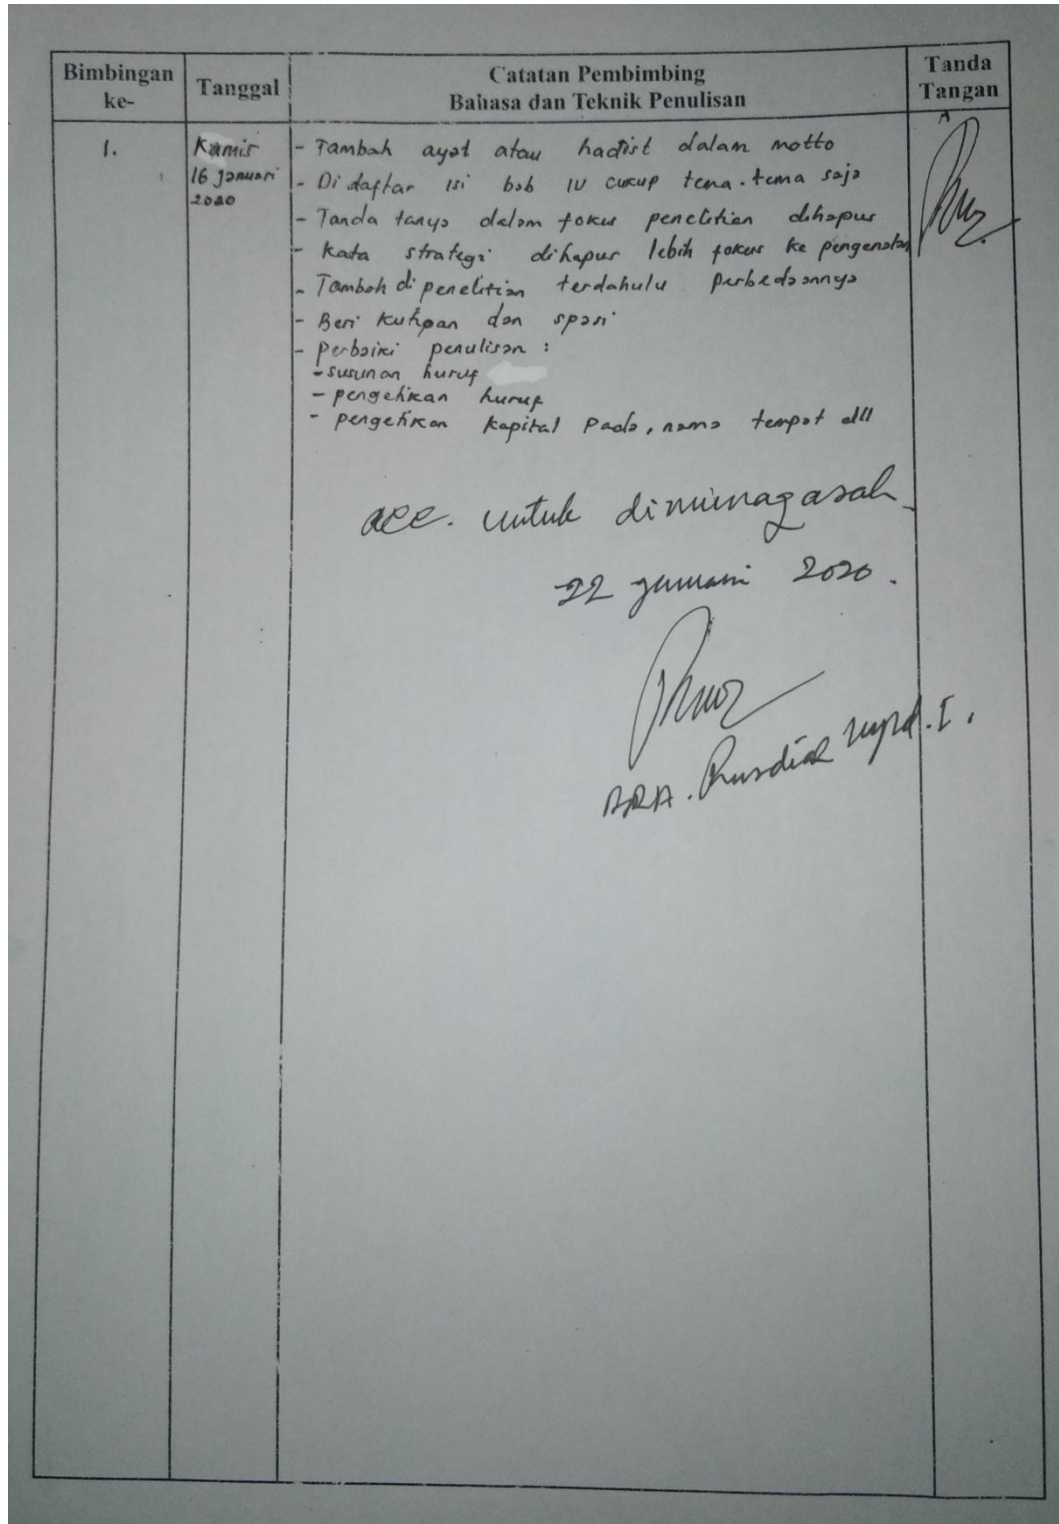 Bimbingan ke-
Tanggal
Catatan Pembimbing
Bahasa dan Teknik Penulisan
Tanda Tangan
1.
Kamis
16 Januari
2020
- Tambah ayat atau hadist dalam motto
- Di daftar isi bab IV cukup tema-tema saja
- Tanda tanya dalam fokus penelitian dihapus
- Kata strategi dihapus lebih fokus ke pengenalan
- Tambah di penelitian terdahulu perbedaannya
- Beri kutipan dan spasi
- Perbaiki penulisan :
- susunan huruf
- pengetikan huruf
- pengetikan kapital pada, nama tempat dll
acc. untuk dimunaqasah
22 Januari 2020.
Rusdiah M.Pd.I.